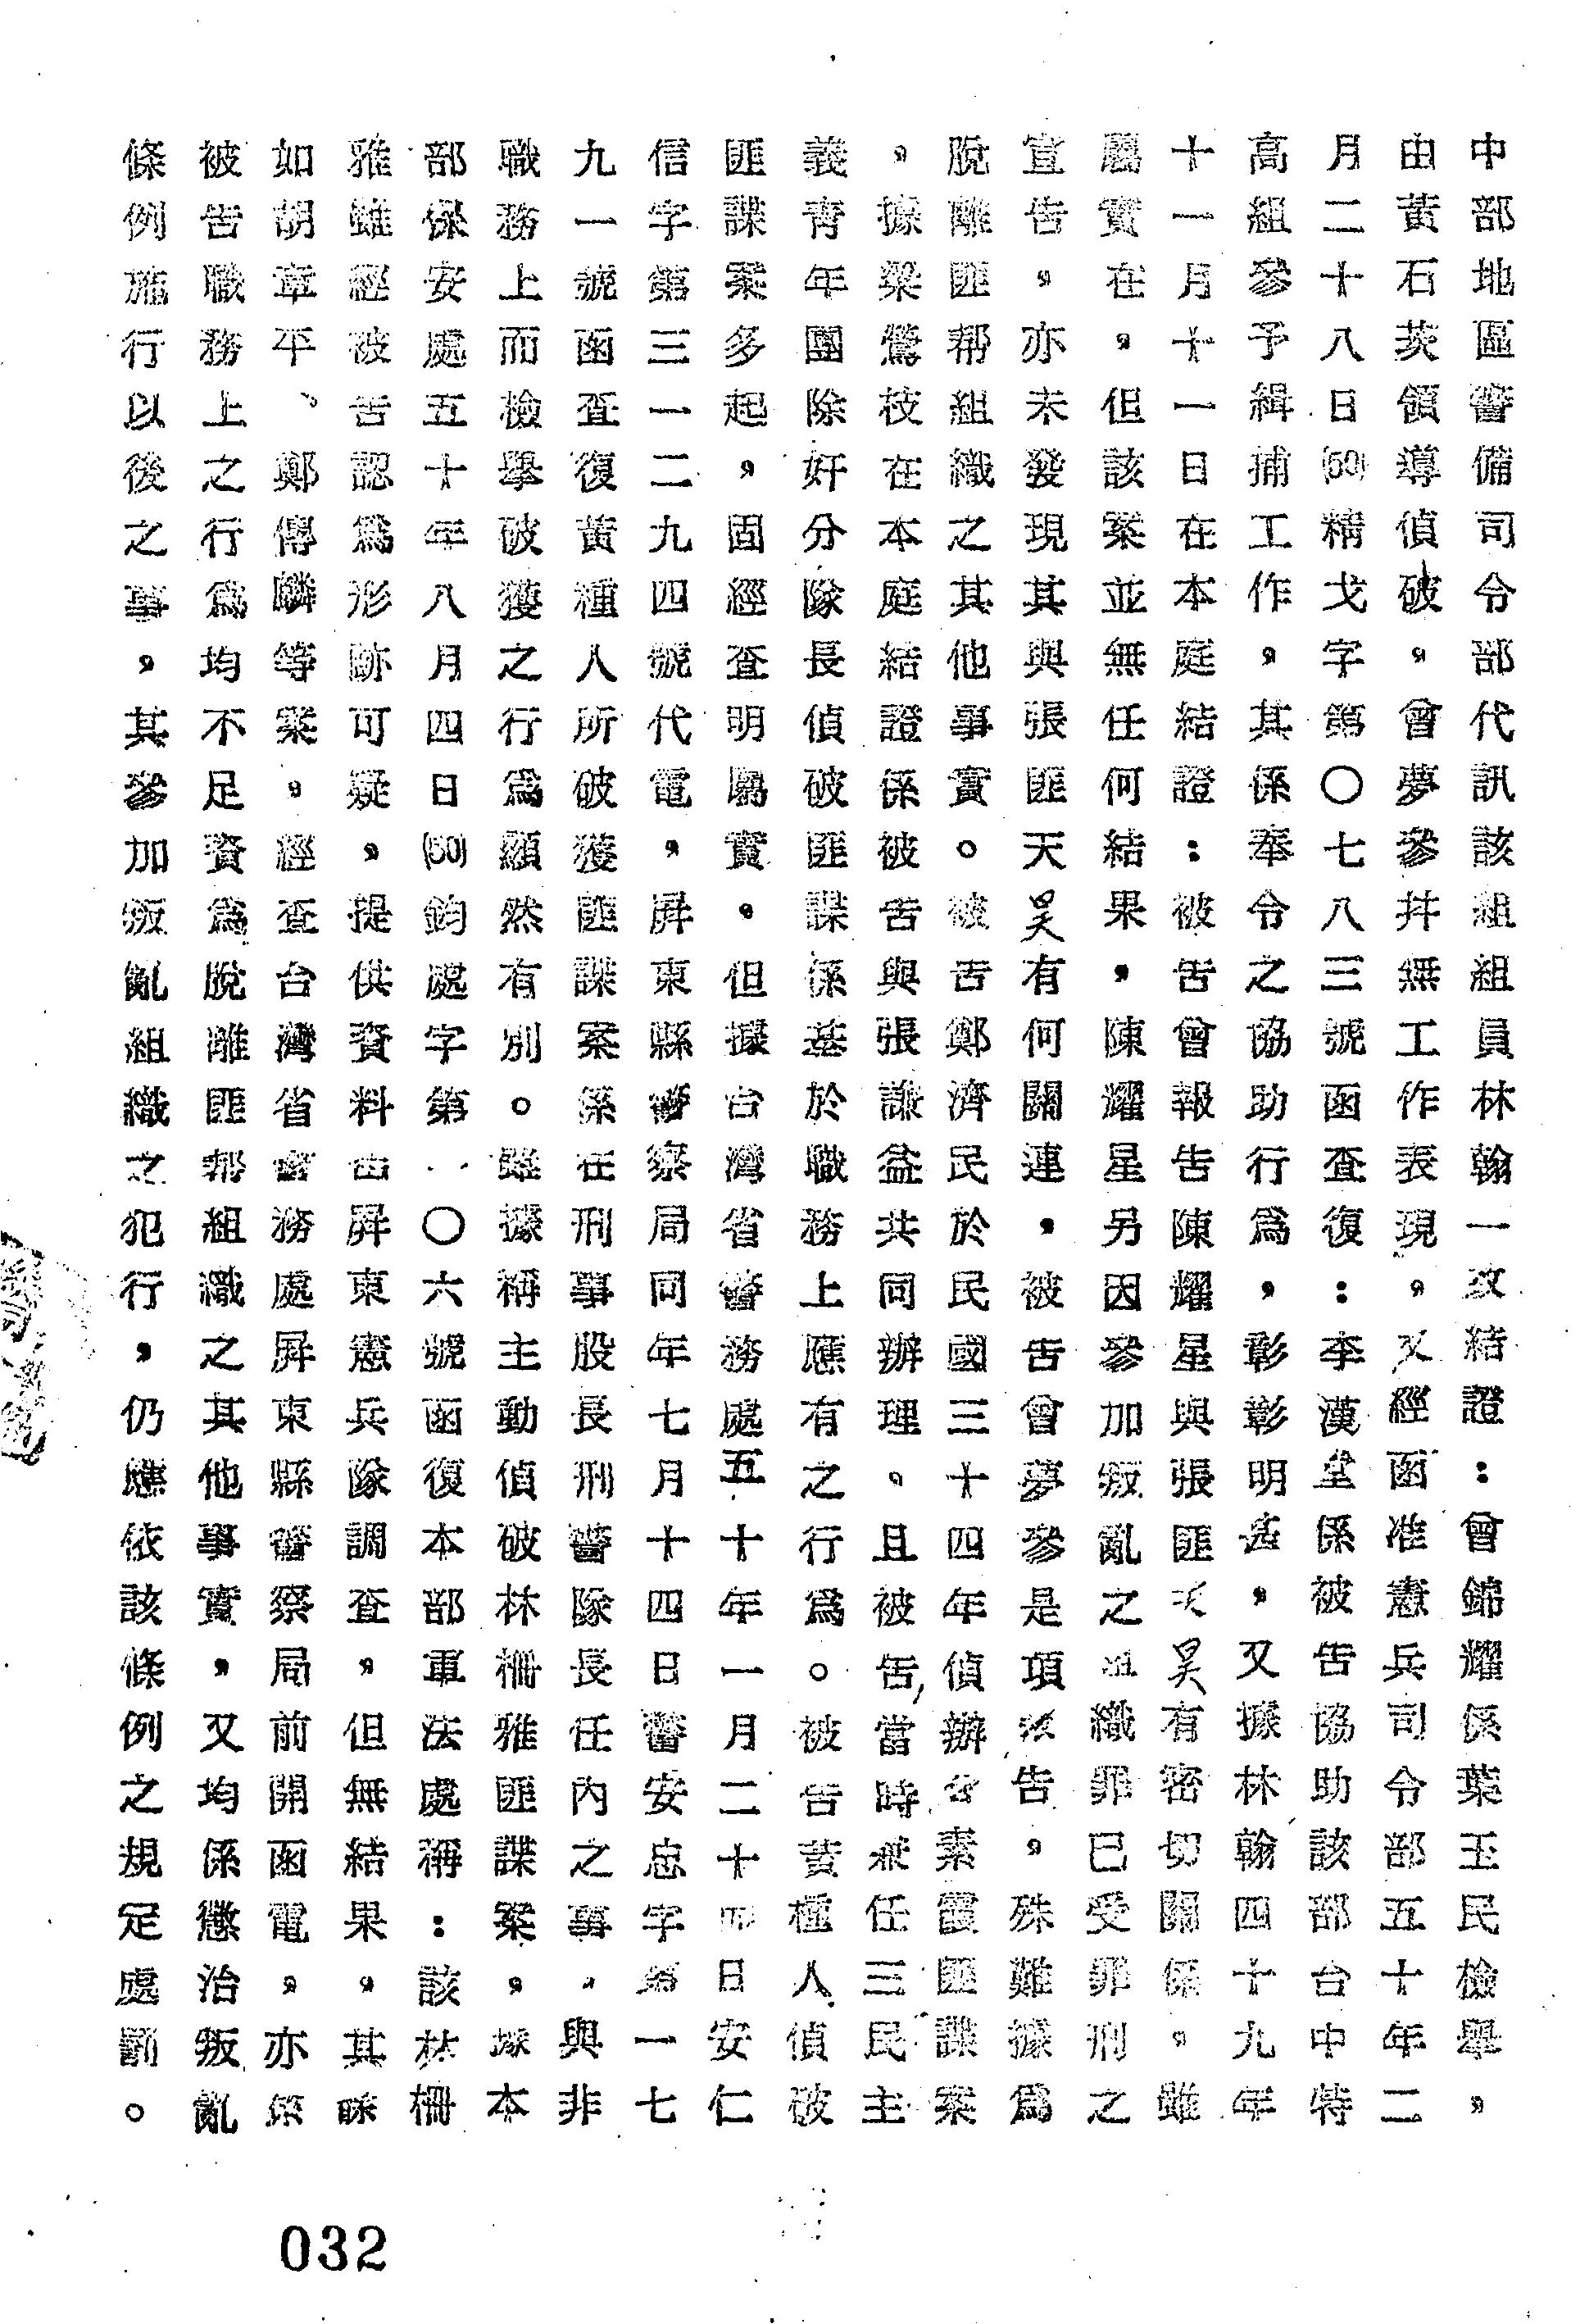 中部地區警備司令部代訊該組組員林翰一文結證：曾錦耀係葉玉民檢舉，
由黃石茨領導偵破。曾夢參并無工作表現，又經函准憲兵司令部五十年二
月二十八日(50)精戈字第〇七八三號函查復：李漢堂係被告協助該部台中特
高組參予緝捕工作，其係奉令之協助行為，彰彰明甚，又據林翰四十九年
十一月十一日在本庭結證：被告曾報告陳耀星與張匪天昊有密切關係。雖
屬實在。但該案並無任何結果，陳耀星另因參加叛亂之組織罪已受罪刑之
宣告，亦未發現其與張匪天昊有何關連，被告曾夢參是項報告，殊難據為
脫離匪幫組織之其他事實。被告鄭濟民於民國三十四年偵辦公素霞匪諜案
，據梁鶯枝在本庭結證係被告與張謙益共同辦理。且被告，當時兼任三民主
義青年團除奸分隊長偵破匪諜係基於職務上應有之行為。被告黃種人偵破
匪諜案多起，固經查明屬實。但據台灣省警務處五十年一月二十四日安仁
信字第三一二九四號代電，屏東縣警察局同年七月十四日警安忠字第一七
九一號函查復黃種人所破獲匪諜案係在刑事股長刑警隊長任內之事，與非
職務上而檢舉破獲之行為顯然有別。雖據稱主動偵破林柵雅匪諜案，據本
部保安處五十年八月四日(50)鈞處字第 〇六號函復本部軍法處稱：該林柵
雅雖經被告認為形跡可疑，提供資料由屏東憲兵隊調查，但無結果，其餘
如胡章平、鄭傳麟等案。經查台灣省警務處屏東縣警察局前開函電，亦係
被告職務上之行為均不足資為脫離匪幫組織之其他事實，又均係懲治叛亂
條例施行以後之事，其參加叛亂組織之犯行，仍應依該條例之規定處罰。
032